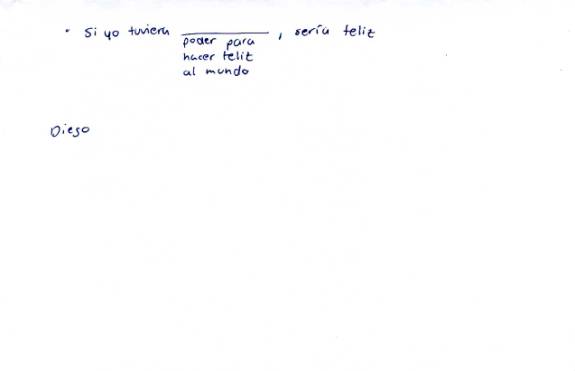 · Si yo tuviera __________, sería feliz
poder para
hacer feliz
al mundo
Diego